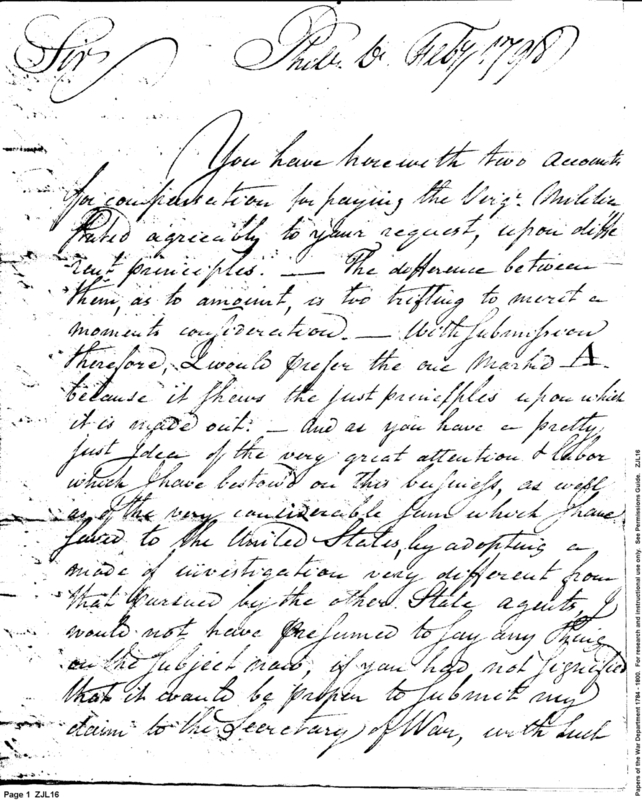 Sir Phila. Feby 1798
You have herewith two accounts
for compensation for paying the Virga. Militia
Stated agreeably to your request, upon diffe
rent principles. — The difference between
them, as to amount, is too trifling to merit a
moments consideration. — With Submission
therefore, I would prefer the one Markd A.
because it shews the just principples upon which
it is made out: — And as you have a pretty
just Idea of the very great attention & labor
which I have bestowd on this business, as well
as of the very considerable sum which I have
saved to the United States, by adopting a
mode of investigation very different from
that pursued by the other State agents, I
would not have presumed to say any thing
on the Subject now, if you had not Signified
that it would be proper to submit my
claim to the Secretary of War, with such
Page 1 ZJL16
Papers of the War Department 1784 - 1800. For research and instructional use only. See Permissions Guide. ZJL16